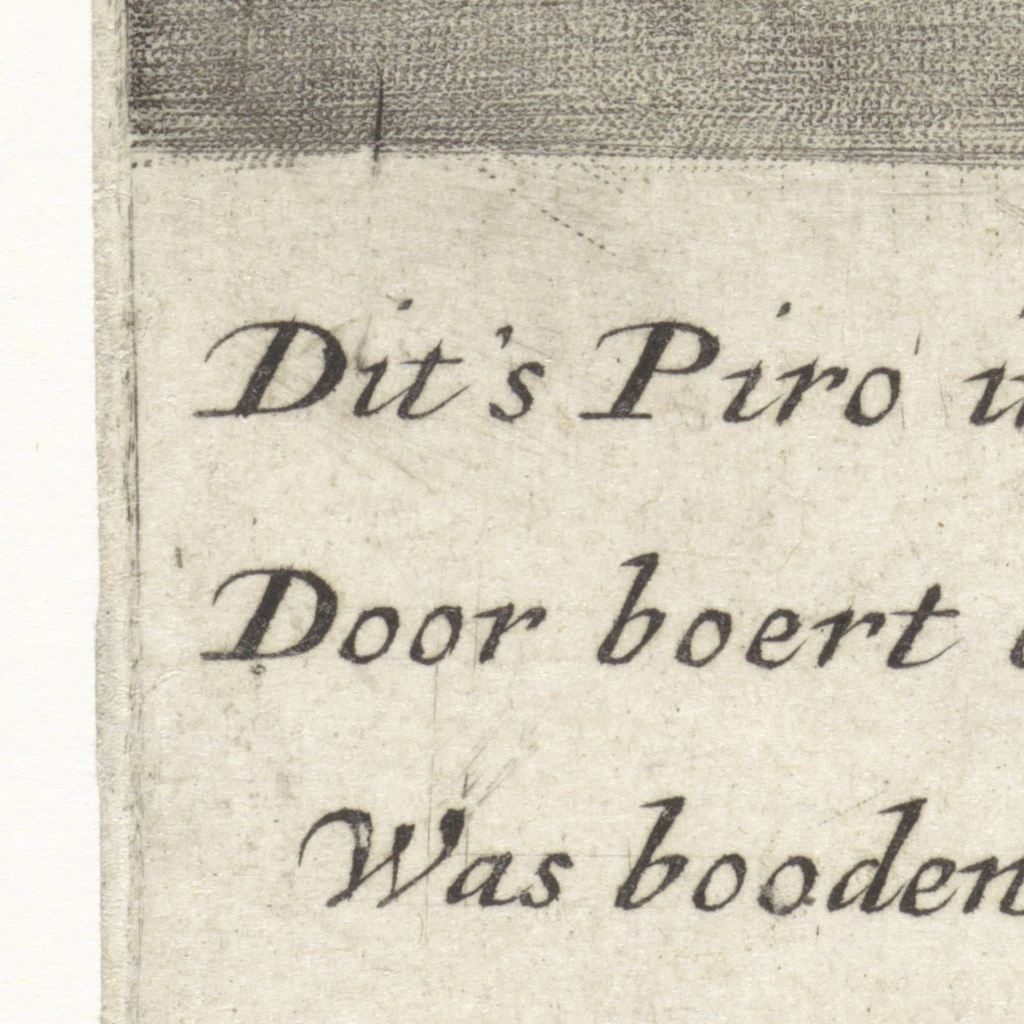 Dit's Piro
Door boert
Was booden